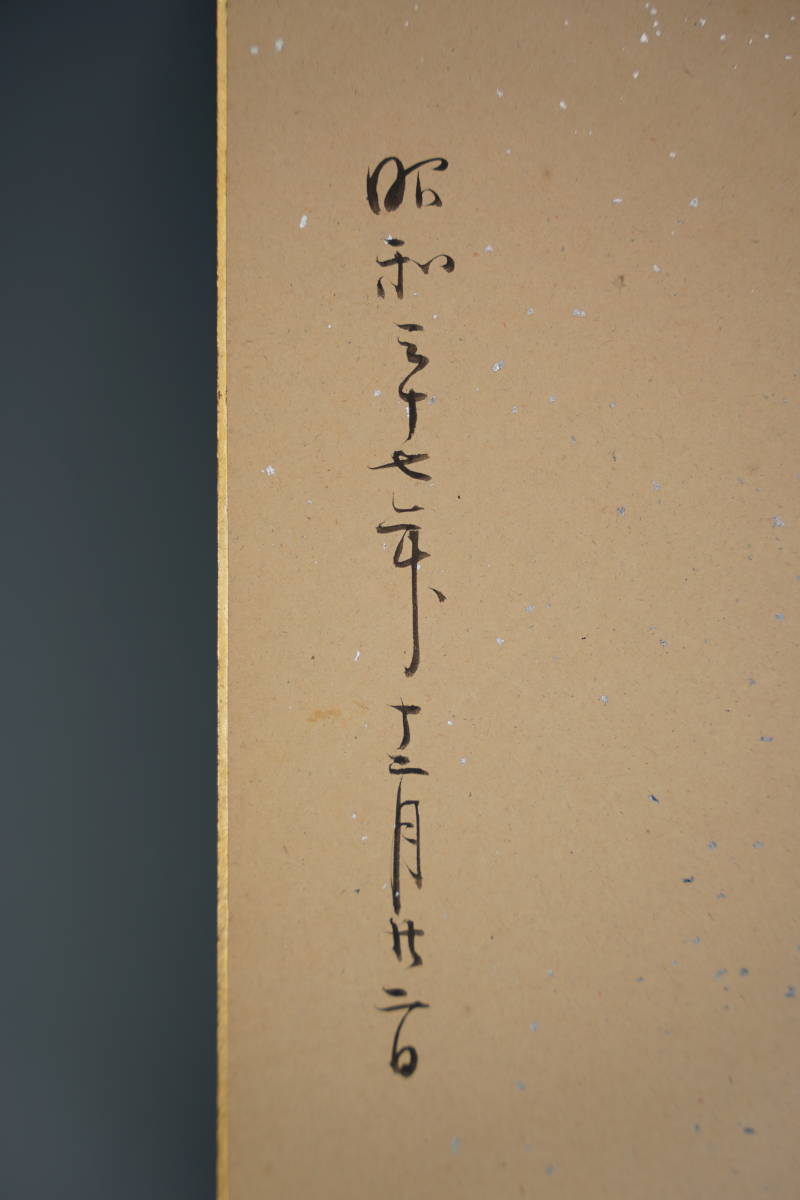 昭和三十七年十二月廿二日